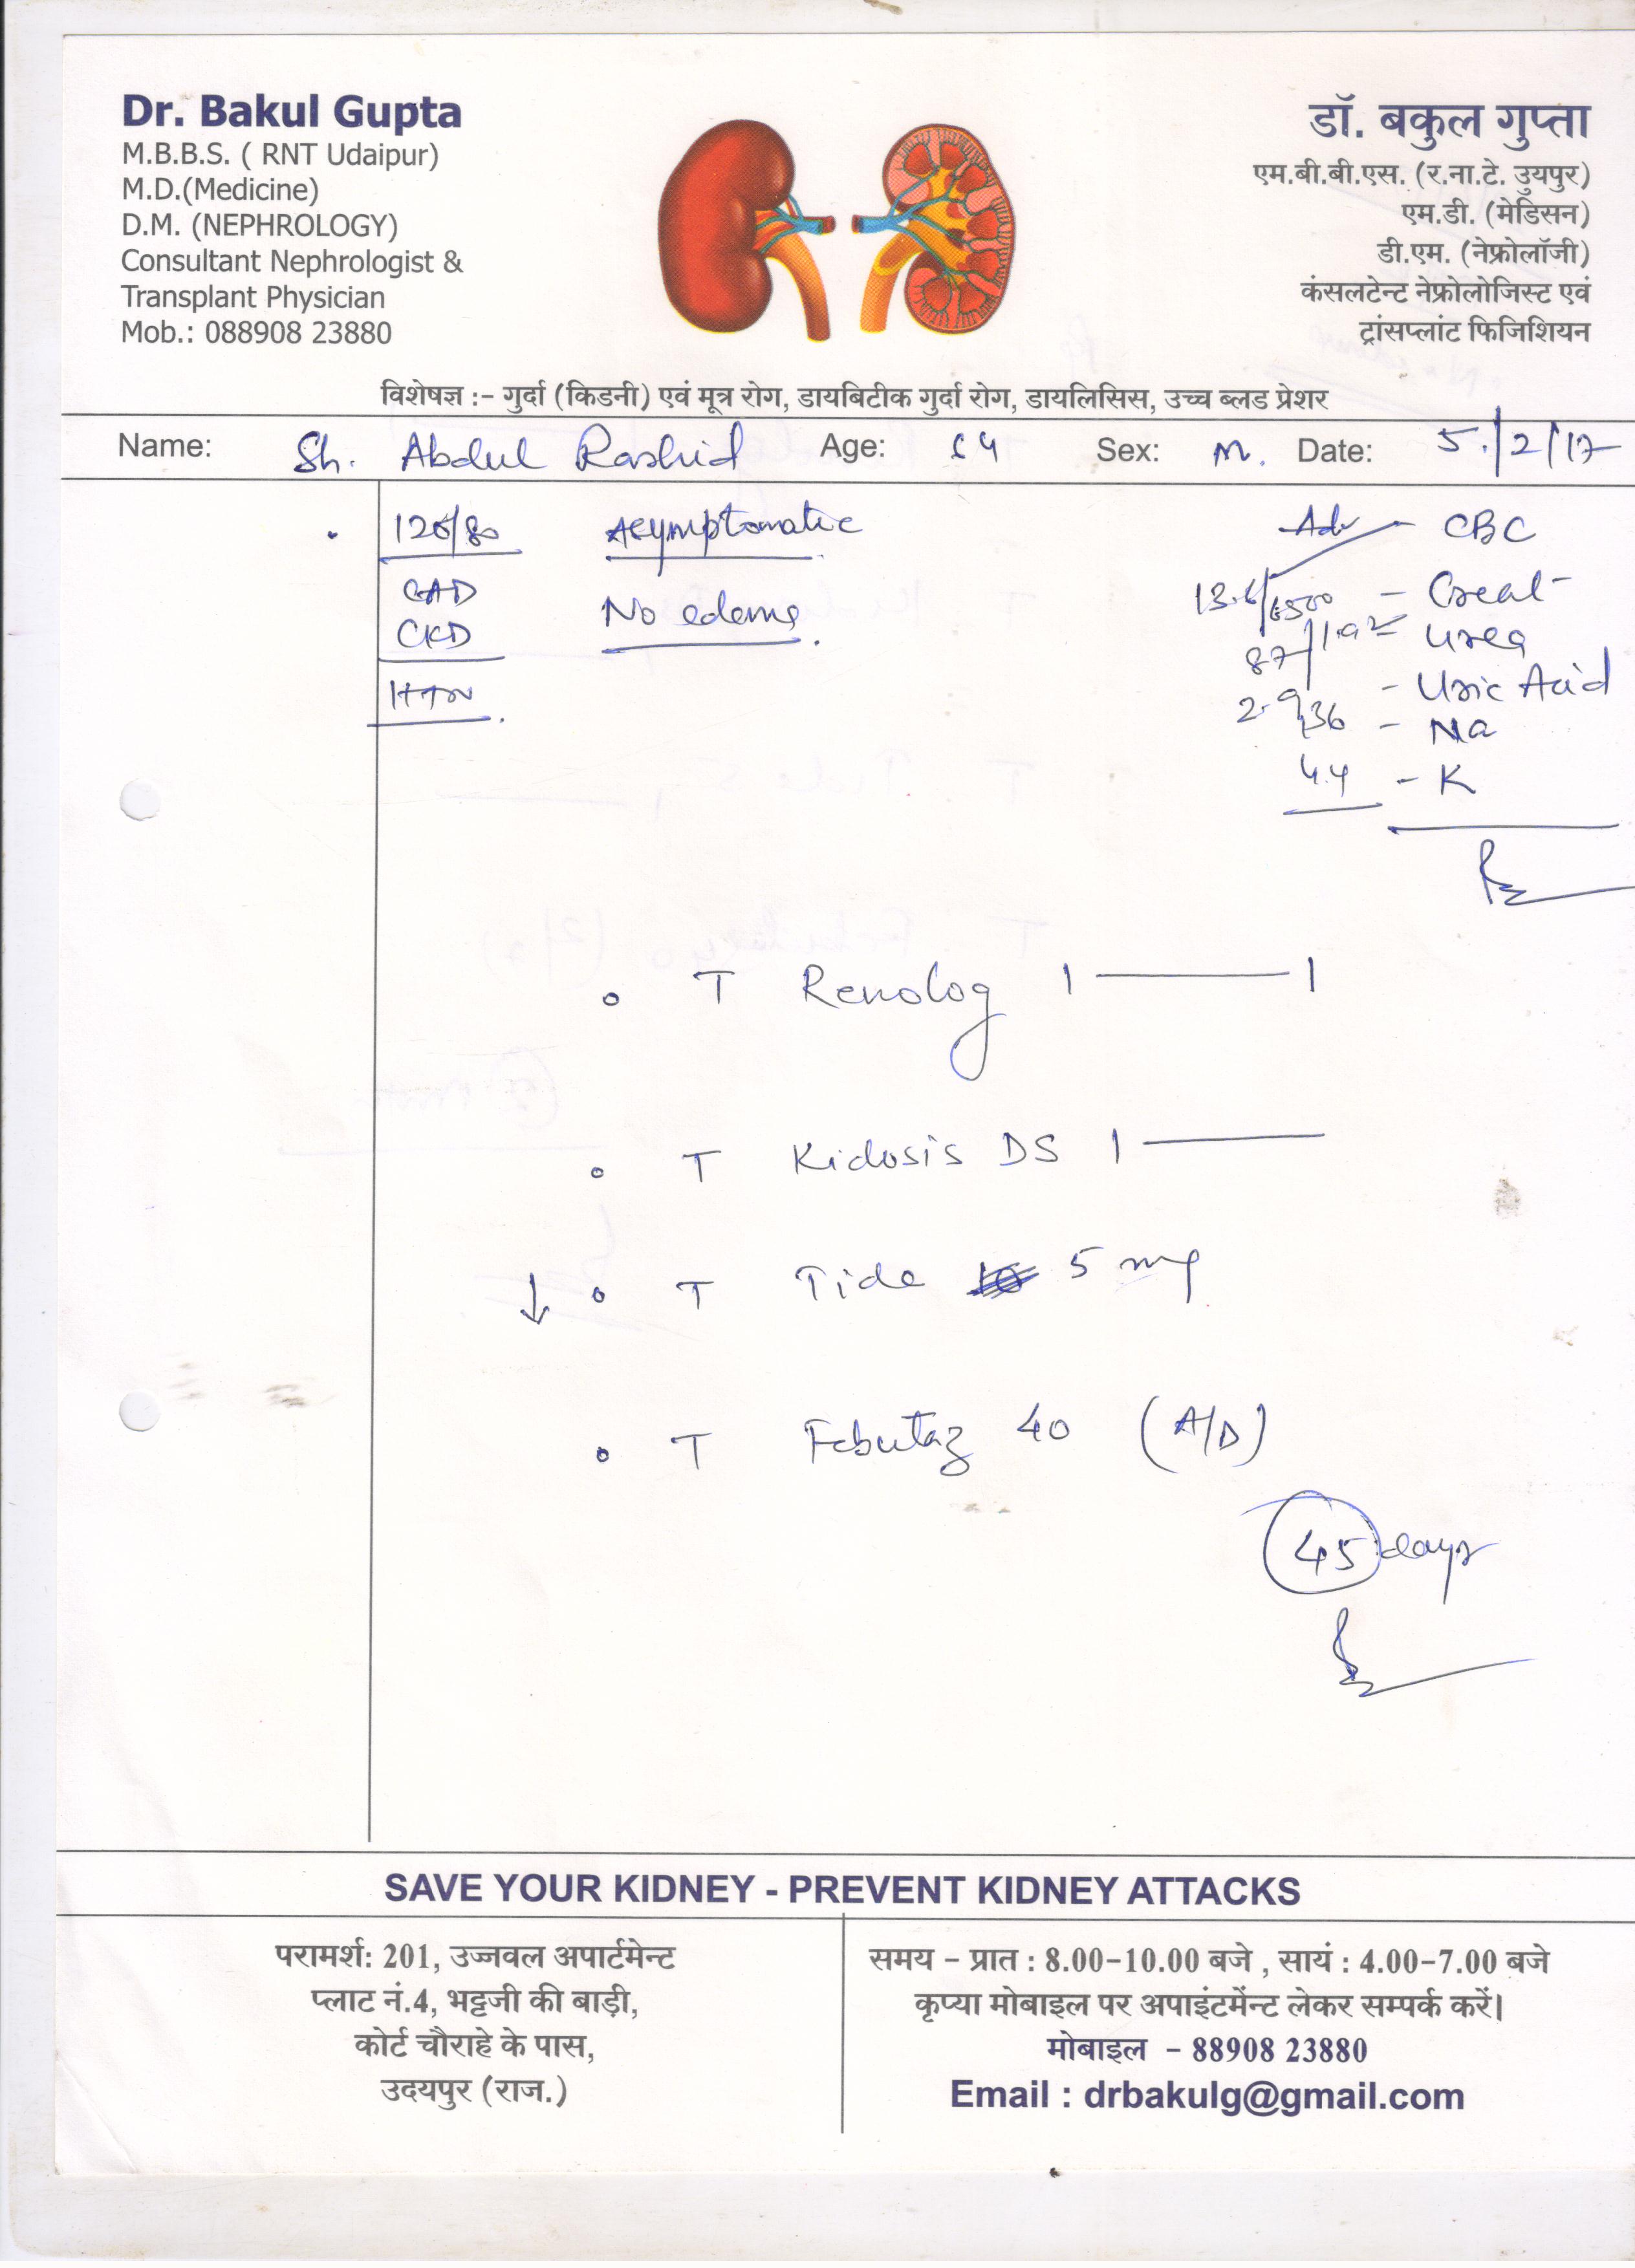 Dr. Bakul Gupta
M.B.B.S. ( RNT Udaipur)
M.D.(Medicine)
D.M. (NEPHROLOGY)
Consultant Nephrologist &
Transplant Physician
Mob.: 088908 23880
डॉ. बकुल गुप्ता
एम.बी.बी.एस. (र.ना.टे. उुयपुर)
एम.डी. (मेडिसन)
डी.एम. (नेफ्रोलॉजी)
कंसलटेन्ट नेफ्रोलोजिस्ट एवं
ट्रांसप्लांट फिजिशियन
विशेषज्ञ :- गुर्दा (किडनी) एवं मूत्र रोग, डायबिटीक गुर्दा रोग, डायलिसिस, उच्च ब्लड प्रेशर
Name: Sh. Abdul Rashid Age: 64 Sex: M. Date: 5/2/17
120/80 Asymptomatic
CAD
CKD No edema.
HTN.
Adv - CBC
13.6/6500 - Creat
87/1.92 = Urea
2.9 - Uric Acid
136 - Na
4.4 - K
T Renolog 1 — 1
T Kidosis DS 1 —
↓ T Tide 5 mg
T Febutaz 40 (A/D)
45 days
SAVE YOUR KIDNEY - PREVENT KIDNEY ATTACKS
परामर्श: 201, उज्जवल अपार्टमेन्ट
प्लाट नं.4, भट्टजी की बाड़ी,
कोर्ट चौराहे के पास,
उदयपुर (राज.)
समय - प्रात : 8.00-10.00 बजे , सायं : 4.00-7.00 बजे
कृप्या मोबाइल पर अपाइंटमेंन्ट लेकर सम्पर्क करें।
मोबाइल - 88908 23880
Email : drbakulg@gmail.com